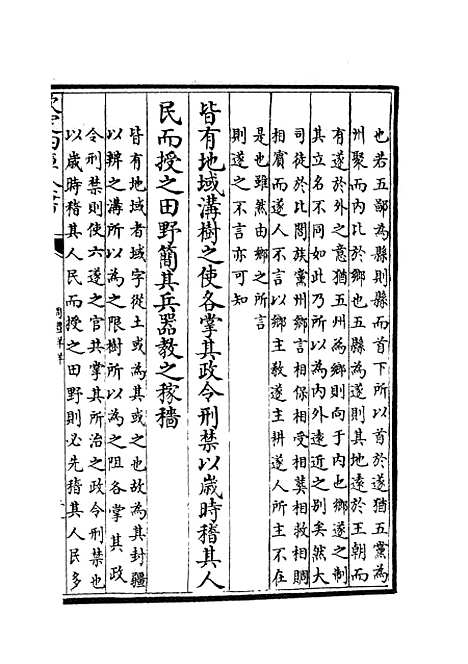 也若五鄙為縣則縣而首下所以首於遂猶五黨為
州聚而内比於鄉也五縣為遂則其地逺於王朝而
有遂於外之意猶五州為鄉則向于内也鄉遂之制
其立名不同如此乃所以為内外逺近之别矣然大
司徒於比閭族黨州鄉言相保相受相葬相救相賙
相賓而遂人不言以鄉主教遂主耕遂人所主不在
是也雖然由鄉之所言
則遂之不言亦可知
皆有地域溝樹之使各掌其政令刑禁以歲時稽其人
民而授之田野簡其兵器教之稼穡
皆有地域者域字從土或為其或之也故為其封疆
以辨之溝所以為之限樹所以為之阻各掌其政
令刑禁則使六遂之官共掌其所治之政令刑禁也
以歲時稽其人民而授之田野則必先稽其人民多
周禮詳解